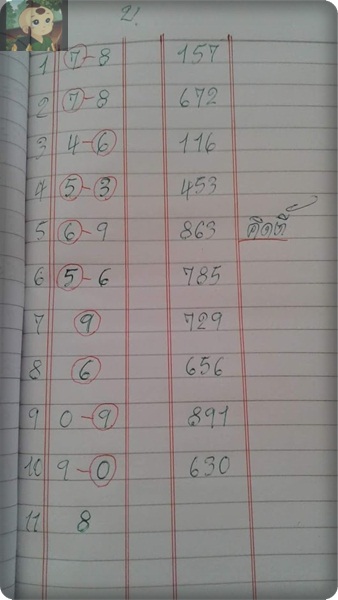 ข.
1 7-8 157
2 7-8 672
3 4-6 116
4 5-3 453
5 6-9 863 คิดที่
6 5-6 785
7 9 729
8 6 656
9 0-9 891
10 9-0 630
11 8